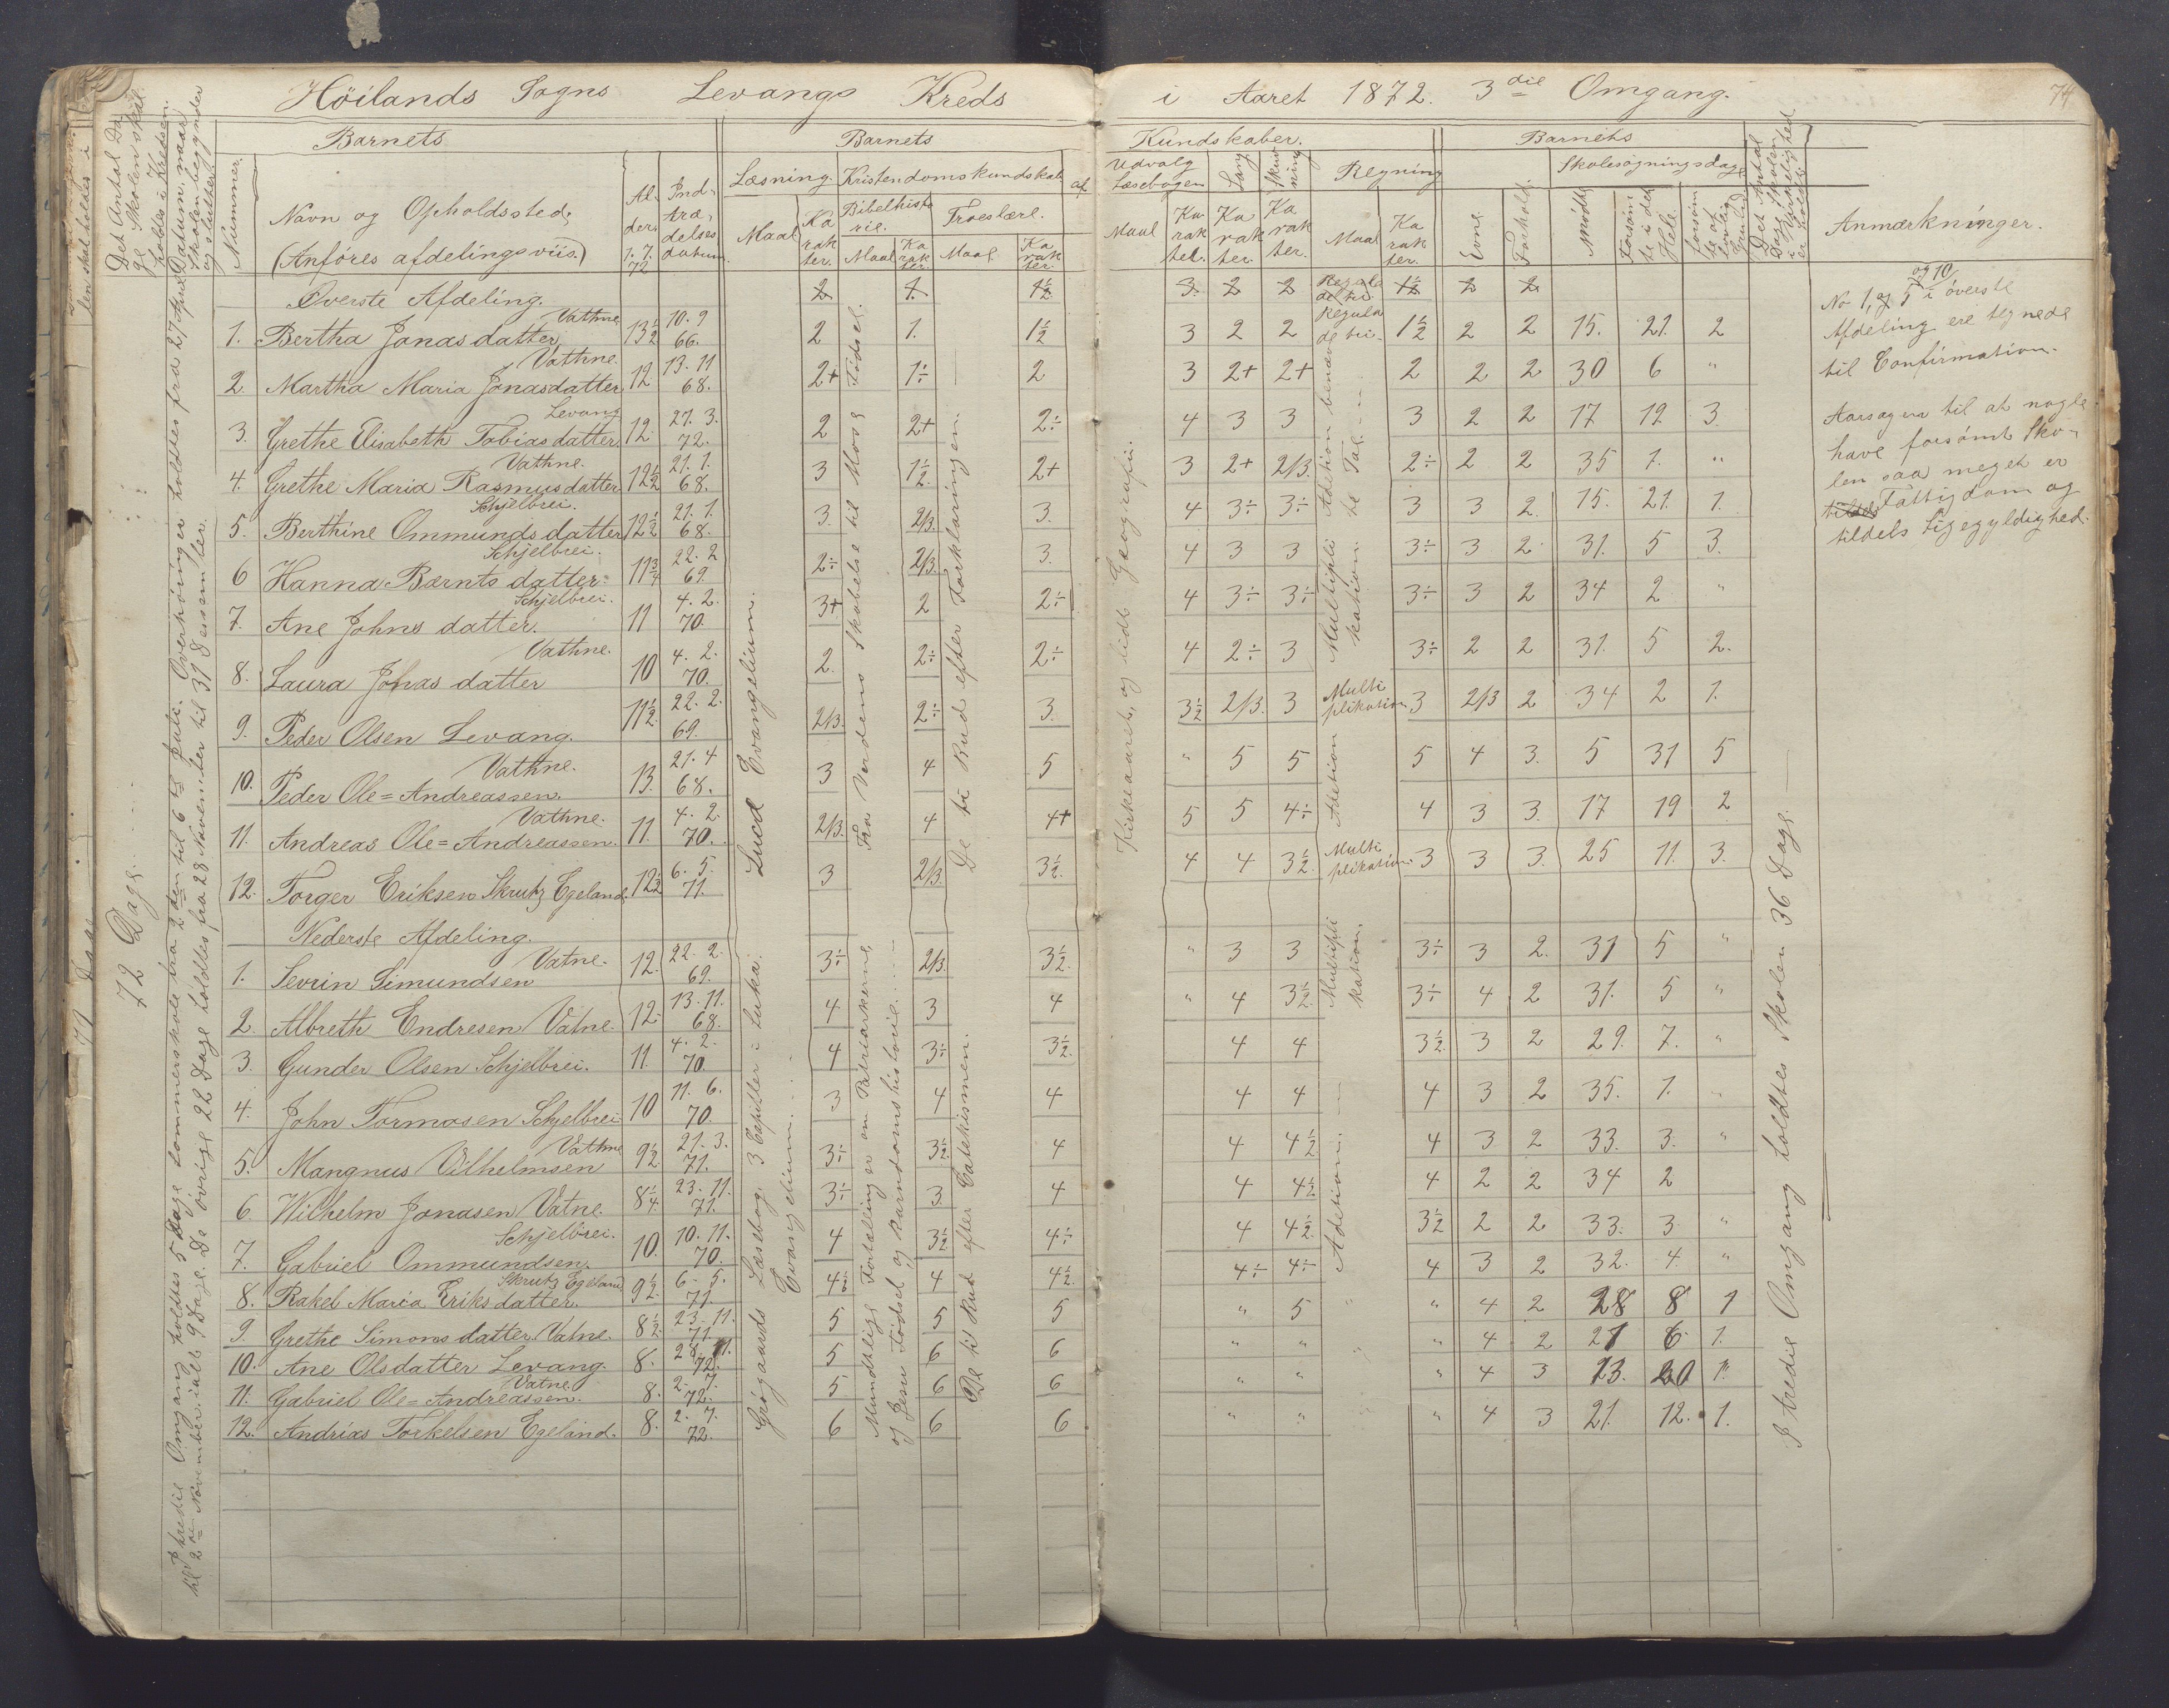 Höilands Sogns Levangs Kreds i Aaret 1872. 3die Omgang. 74
Barnets Barnets Kundskaber. Barnets
Det Antal Dage Skolen skal holdes i Kredsen.
72 Dage
Datum, naar Skolen begynder og slutter.
Nummer.
Navn og Opholdssted,
(Anføres afdelingsviis.)
Alder 1. 7. 72
Indtrædelsesdatum.
Læsning. Kristendomskundskab af
Maal Karakter.
Bibelhistorie. Troeslære.
Maal Karakter. Maal Karakter.
Udvalg Læsebogen Sang Skrivning Regning
Maal Karakter. Karakter. Karakter. Maal Karakter.
Evne. Forhold.
Skolesøgningsdage
Mødte Forsømte i det Hele.
Det Antal Dage Skolen i Virkelighed er holdt
Anmærkninger.
Øverste Afdeling. 2 1. 1½ 3. 2 2 Regula de tri. 1½ 2 2
1. Bertha Jonasdatter Vathne 13½ 10. 9 66. 2 1. 1½ 3 2 2 Regula de tri. 1½ 2 2 15. 21. 2
2. Martha Maria Jonasdatter Vathne. 12 13. 11 68. 2+ 1÷ 2 3 2+ 2+ 2 2 2 30 6 "
3. Grethe Elisabeth Tobiasdatter Levang 12 27. 3. 72. 2 2+ 2÷ 4 3 3 3 2 2 17 19 3.
4. Grethe Maria Rasmusdatter Vathne. 12½ 21. 1. 68. 3 1½ 2+ 3 2+ 2/3. 2÷ 2 2 35 1. "
5. Berthine Ommundsdatter Schjelbrei. 12½ 21. 1. 68. 3. 2/3. 3. 4 3÷ 3÷ 3 3 2. 15. 21. 1.
6 Hanna Bærntsdatter. Schjelbrei. 11¾ 22. 2 69. 2÷ 2/3. 3. 4 3 3 3÷ 3 2 31. 5 3.
7. Ane Johnsdatter. Schjelbrei. 11 4. 2. 70. 3+ 2 2÷ 4 3÷ 3÷ 3÷ 3 2 34 2 "
8. Laura Johasdatter Vathne. 10 4. 2. 70. 2. 2÷ 2÷ 4 2÷ 3 3÷ 2 2 31. 5 2.
9. Peder Olsen Levang. 11½ 22. 2. 69. 2/3. 2÷ 3. 3½ 2/3. 3 Multiplikation 3 2/3 2 34 2 1.
10. Peder Ole=Andreassen. Vathne. 13. 21. 4 68. 3 4 5 " 5 5 5 4 3. 5 31 5
11. Andreas Ole=Andreassen. Vathne. 11. 4. 2. 70. 2/3. 4 4+ 5 5 4÷ 4 3 3. 17 19 2
12. Torger Eriksen Skrutz Egeland. 12½ 6. 5. 71. 3 2/3. 3½ 4 4 3½ Multiplikation. 3 3 3. 25 11. 3.
Nederste Afdeling.
1. Sevrin Simundsen Vatne. 12. 22. 2. 69. 3÷ 2/3. 3½ " 3 3 3÷ 3 2. 31 5 "
2. Albreth Endresen Vatne. 12. 13. 11. 68. 4 3 4 " 4 3½ 3÷ 4 2 31. 5 "
3. Gunder Olsen Schjelbrei. 11. 4. 2. 70. 4 3÷ 3½ 4 4 3½ 3 2 29. 7. "
4. John Tormosen Schjelbrei 10 11. 6. 70. 3 4 4 4 4 4 3 2 35. 1.
5. Mangnus Vilhelmsen Vathne 9½ 21. 3. 71. 3÷ 3½ 4 4 4½ 4 3 2 33. 3. "
6. Wilhelm Jonasen Vatne. 8¼ 23. 11. 71. 3÷ 3 4 4 4½ 4 2 2 34 2
7. Gabriel Ommundsen. Schjelbrei. 10. 10. 11. 70. 4 3½ 4÷ 4 4½ 3½ 2 2 33. 3 "
8. Rakel Maria Eriksdatter. Skrutz Egeland 9½ 6. 5. 71 4½ 4 4½ 4÷ 4÷ 4 3 2 32. 4. "
9. Grethe Simonsdatter Vatne. 8½ 23. 11. 71. 5 5 5 " 5 " 4 2 28 8 1
10. Ane Olsdatter Levang. 8. 28. 11. 72. 5 6 6 " " " 4 2 21 6 1.
11. Gabriel Ole=Andreassen. Vatne. 8. 2. 7. 72. 5 6 6 " " " 4 3 13. 20 1.
12. Andrias Torkelsen Egeland. 8. 2. 7. 72. 6 6 6 " " " 4 3 21. 12. 1.
I tredie Omgang holdtes 5 Dage Sommerskole fra 2den til 6te Juli. Overhøringer holdtes fra 27 April
til 2de November ialt 9 Dage. De øvrige 22 Dage holdtes fra 28 November til 31 Desember.
Lucæ Evangelium.
Fra Verdens Skabelse til Mose Fødsel.
De ti Bud efter Forklaringen.
Grøgaards Læsebog. 3 Capitler i Lukas Evangelium.
Mundtlige Fortælling er om Patriarkerne, og Jesu Fødsel og Barndomshistorie.
De ti Bud efter Catekismen.
Kirkeaaret, og lidt Geografi.
Adition benævnte Tal.
Multiplikation.
Adition
Multiplikation.
Adition
I tredie Omgang holdtes Skolen 36 Dage.
No 1, 5 og 10 i øverste
Afdeling ere tegnede
til Confirmation.
Aarsagen til at nogle
have forsømt Sko-
len saa meget er
tildels Fattigdom og
tildels Ligegyldighed.